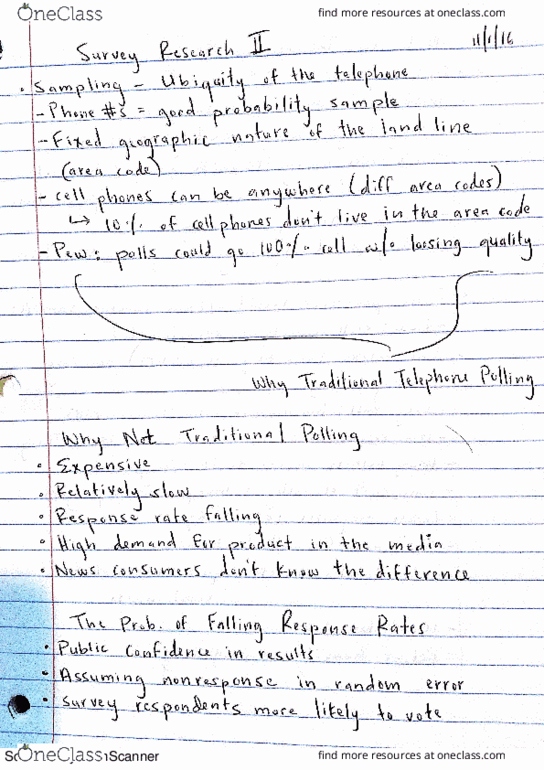 OneClass
find more resources at oneclass.com
Survey Research II
11/1/16
• Sampling - Ubiquity of the telephone
- Phone #s = good probability sample
- Fixed geographic nature of the land line
(area code)
- cell phones can be anywhere (diff area codes)
↳ 10% of cell phones don't live in the area code
- Pew: polls could go 100% cell w/o loosing quality
Why Traditional Telephone Polling
Why Not Traditional Polling
• Expensive
• Relatively slow
• Response rate falling
• High demand for product in the media
• News consumers don't know the difference
The Prob. of Falling Response Rates
• Public Confidence in results
• Assuming nonresponse in random error
• Survey respondents more likely to vote
OneClass
Scanner
find more resources at oneclass.com